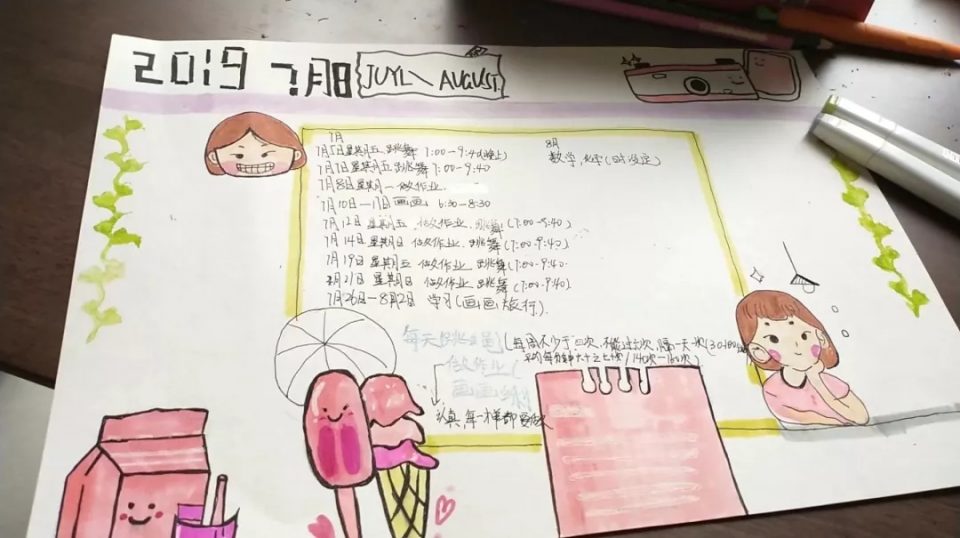 2019 7月8 JUYL\ AUGUST.
7月
7月5日星期五 跳舞 7:00-9:40(晚上)
7月7日星期天 跳舞 7:00-9:40
7月8日星期一 做作业.
7月10日-11日 画画 6:30-8:30
7月12日 星期五 做作业. 跳舞(7:00-9:40)
7月14日 星期日 做作业. 跳舞(7:00-9:40)
7月19日 星期五 做作业 跳舞(7:00-9:40.
7月21日 星期日 做作业 跳舞(7:00-9:40).
7月26日-8月2日 学习(画画旅行).
8月
数学,化学(时没定)
每天跳绳(每周不少于三次,不能过五次,隔一天一次
平均每分钟大于
做作业(
画画
认真,每一样都要做